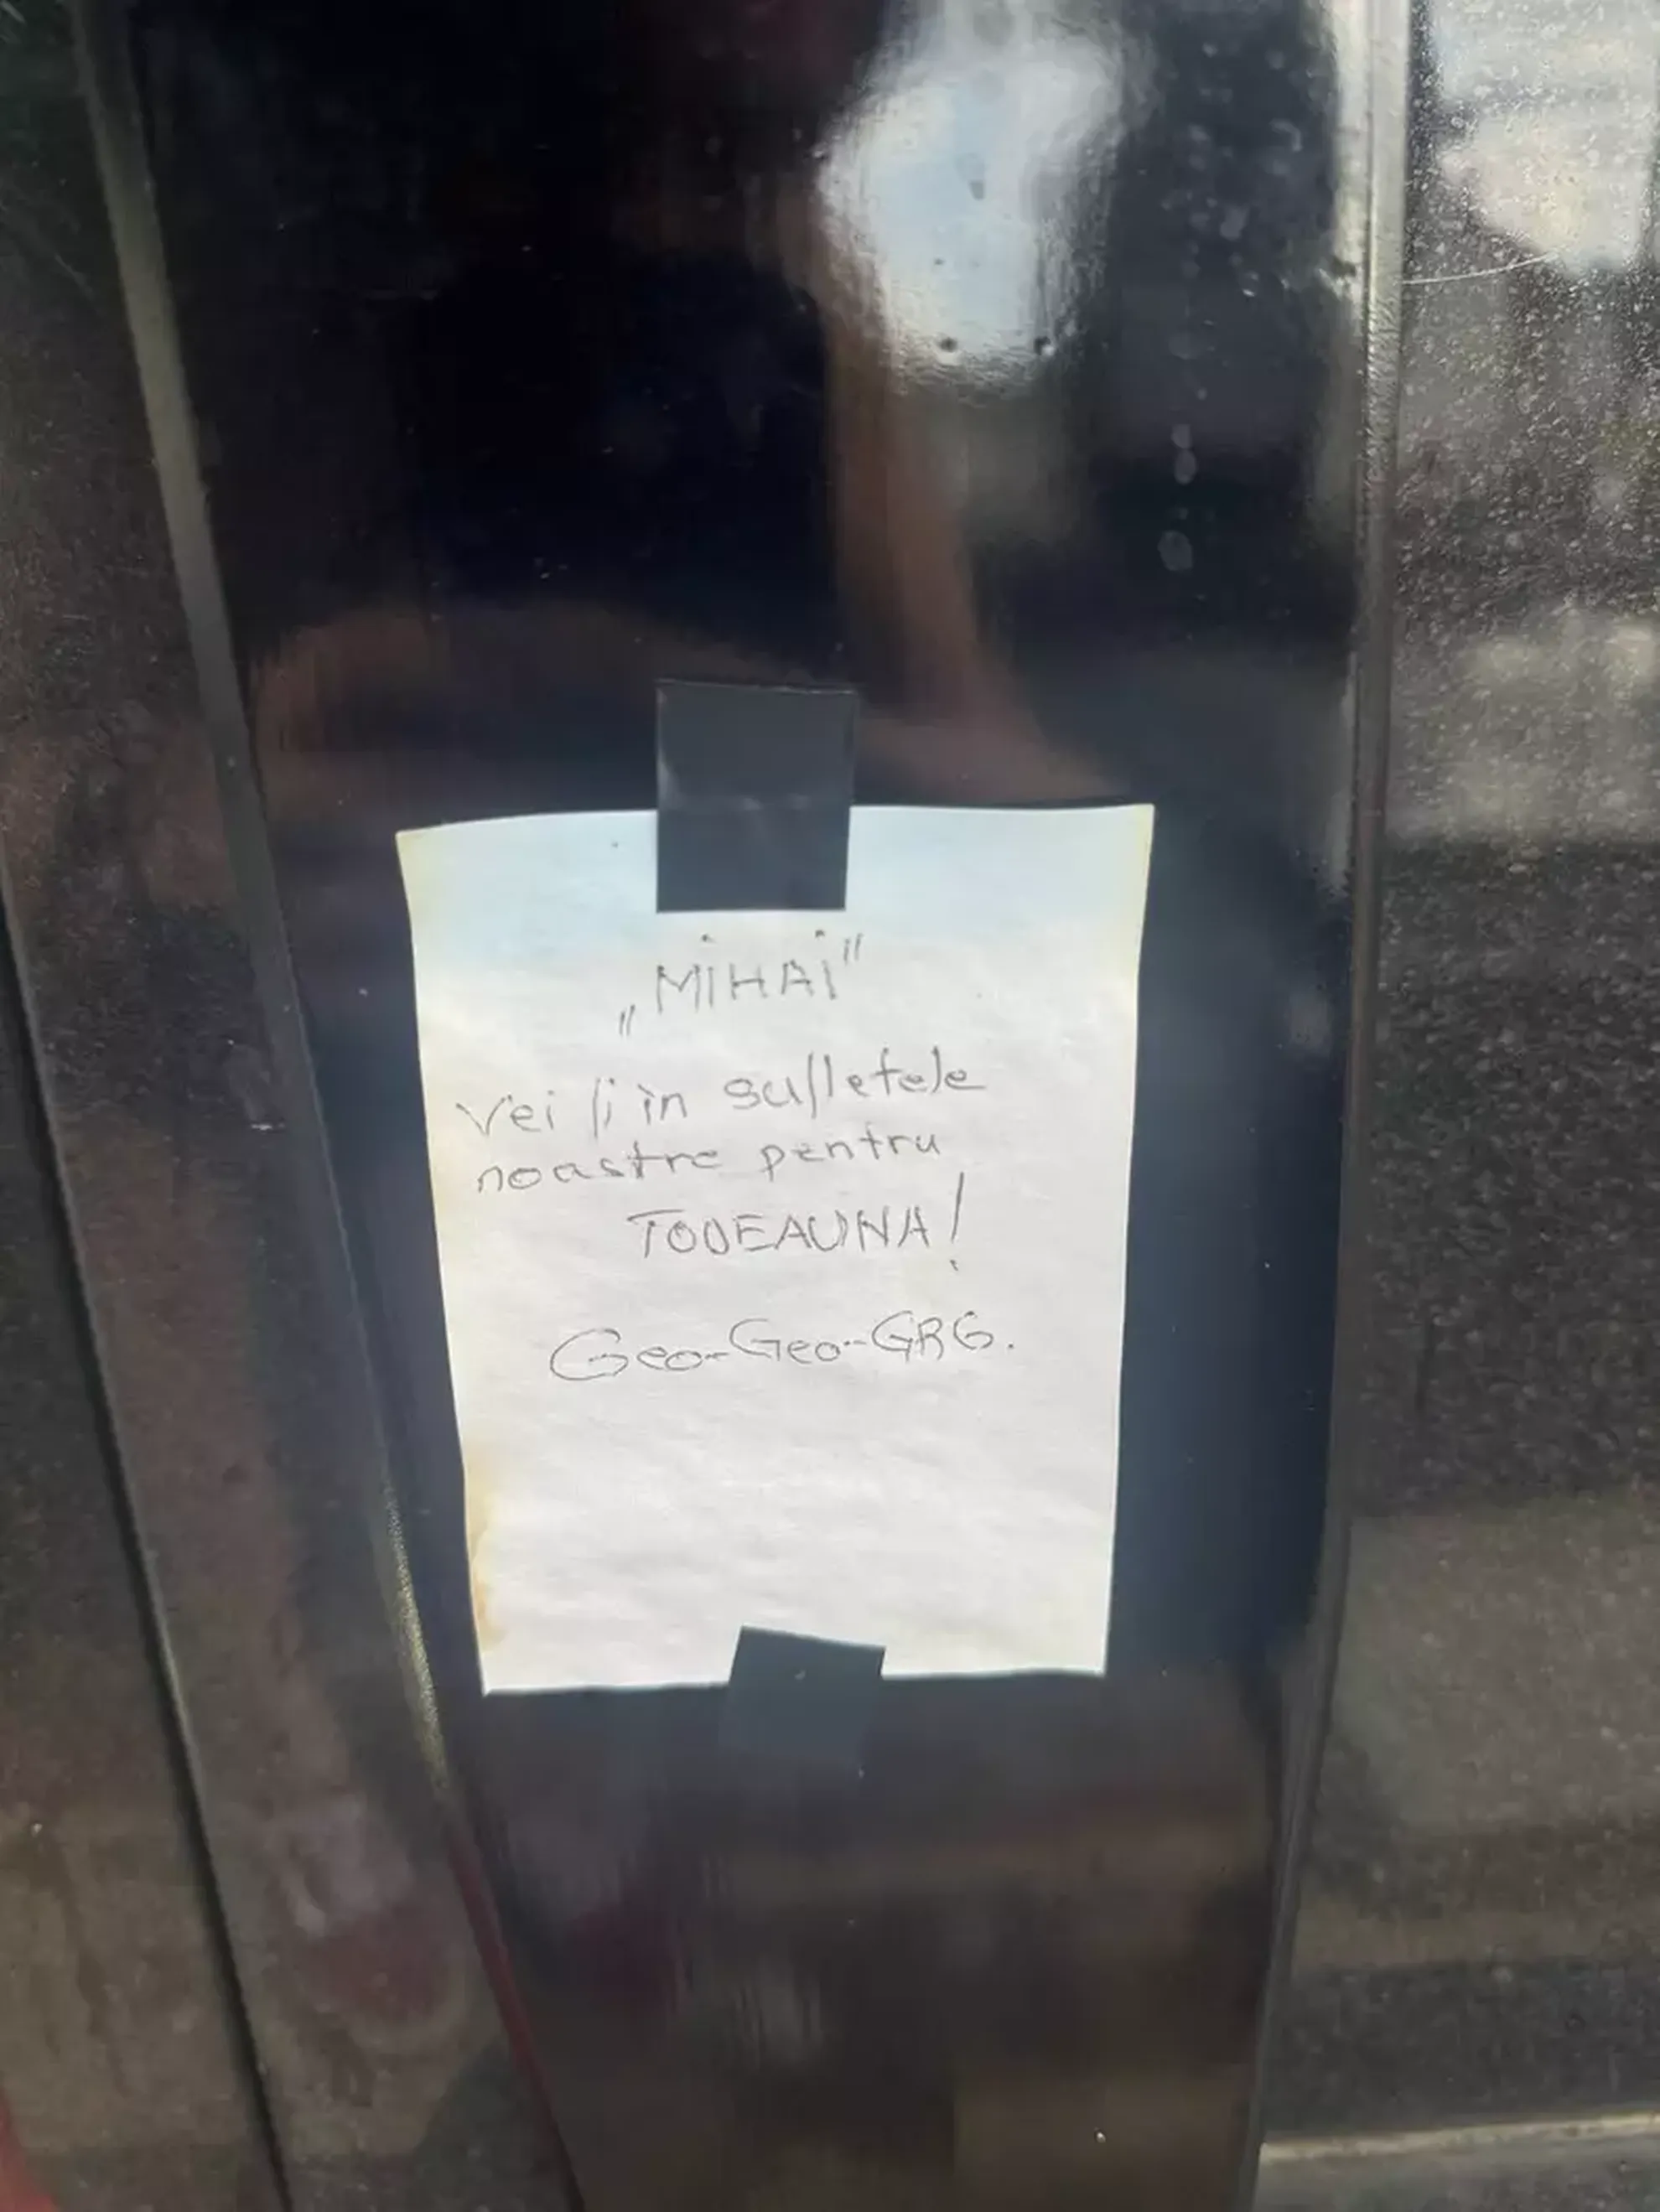 „MiHAi”
Vei fi în sufletele
noastre pentru
TODEAUNA!
Geo-Geo-GRG.